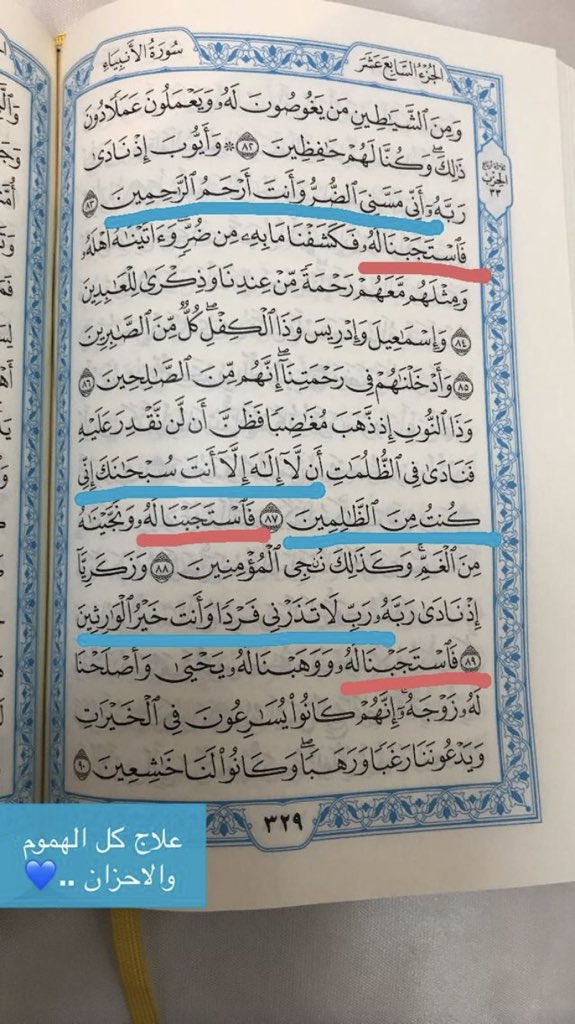 سُورَةُ الأَنبِيَاءِ
الجُزءُ السَّابِعَ عَشَرَ
الحِزْبِ
٣٣
وَمِنَ ٱلشَّيَٰطِينِ مَن يَغُوصُونَ لَهُۥ وَيَعْمَلُونَ عَمَلًا دُونَ
ذَٰلِكَۖ وَكُنَّا لَهُمْ حَٰفِظِينَ ٨٢ ۞ وَأَيُّوبَ إِذْ نَادَىٰ
رَبَّهُۥٓ أَنِّي مَسَّنِيَ ٱلضُّرُّ وَأَنتَ أَرْحَمُ ٱلرَّٰحِمِينَ ٨٣
فَٱسْتَجَبْنَا لَهُۥ فَكَشَفْنَا مَا بِهِۦ مِن ضُرٍّۖ وَءَاتَيْنَٰهُ أَهْلَهُۥ
وَمِثْلَهُم مَّعَهُمْ رَحْمَةً مِّنْ عِندِنَا وَذِكْرَىٰ لِلْعَٰبِدِينَ
٨٤ وَإِسْمَٰعِيلَ وَإِدْرِيسَ وَذَا ٱلْكِفْلِۖ كُلٌّ مِّنَ ٱلصَّٰبِرِينَ
٨٥ وَأَدْخَلْنَٰهُمْ فِي رَحْمَتِنَآۖ إِنَّهُم مِّنَ ٱلصَّٰلِحِينَ ٨٦
وَذَا ٱلنُّونِ إِذ ذَّهَبَ مُغَٰضِبًا فَظَنَّ أَن لَّن نَّقْدِرَ عَلَيْهِ
فَنَادَىٰ فِي ٱلظُّلُمَٰتِ أَن لَّآ إِلَٰهَ إِلَّآ أَنتَ سُبْحَٰنَكَ إِنِّي
كُنتُ مِنَ ٱلظَّٰلِمِينَ ٨٧ فَٱسْتَجَبْنَا لَهُۥ وَنَجَّيْنَٰهُ
مِنَ ٱلْغَمِّۚ وَكَذَٰلِكَ نُـۨجِي ٱلْمُؤْمِنِينَ ٨٨ وَزَكَرِيَّآ
إِذْ نَادَىٰ رَبَّهُۥ رَبِّ لَا تَذَرْنِي فَرْدًا وَأَنتَ خَيْرُ ٱلْوَٰرِثِينَ
٨٩ فَٱسْتَجَبْنَا لَهُۥ وَوَهَبْنَا لَهُۥ يَحْيَىٰ وَأَصْلَحْنَا
لَهُۥ زَوْجَهُۥٓۚ إِنَّهُمْ كَانُوا۟ يُسَٰرِعُونَ فِي ٱلْخَيْرَٰتِ
وَيَدْعُونَنَا رَغَبًا وَرَهَبًاۖ وَكَانُوا۟ لَنَا خَٰشِعِينَ ٩٠
٣٢٩
علاج كل الهموم
والاحزان ..💙